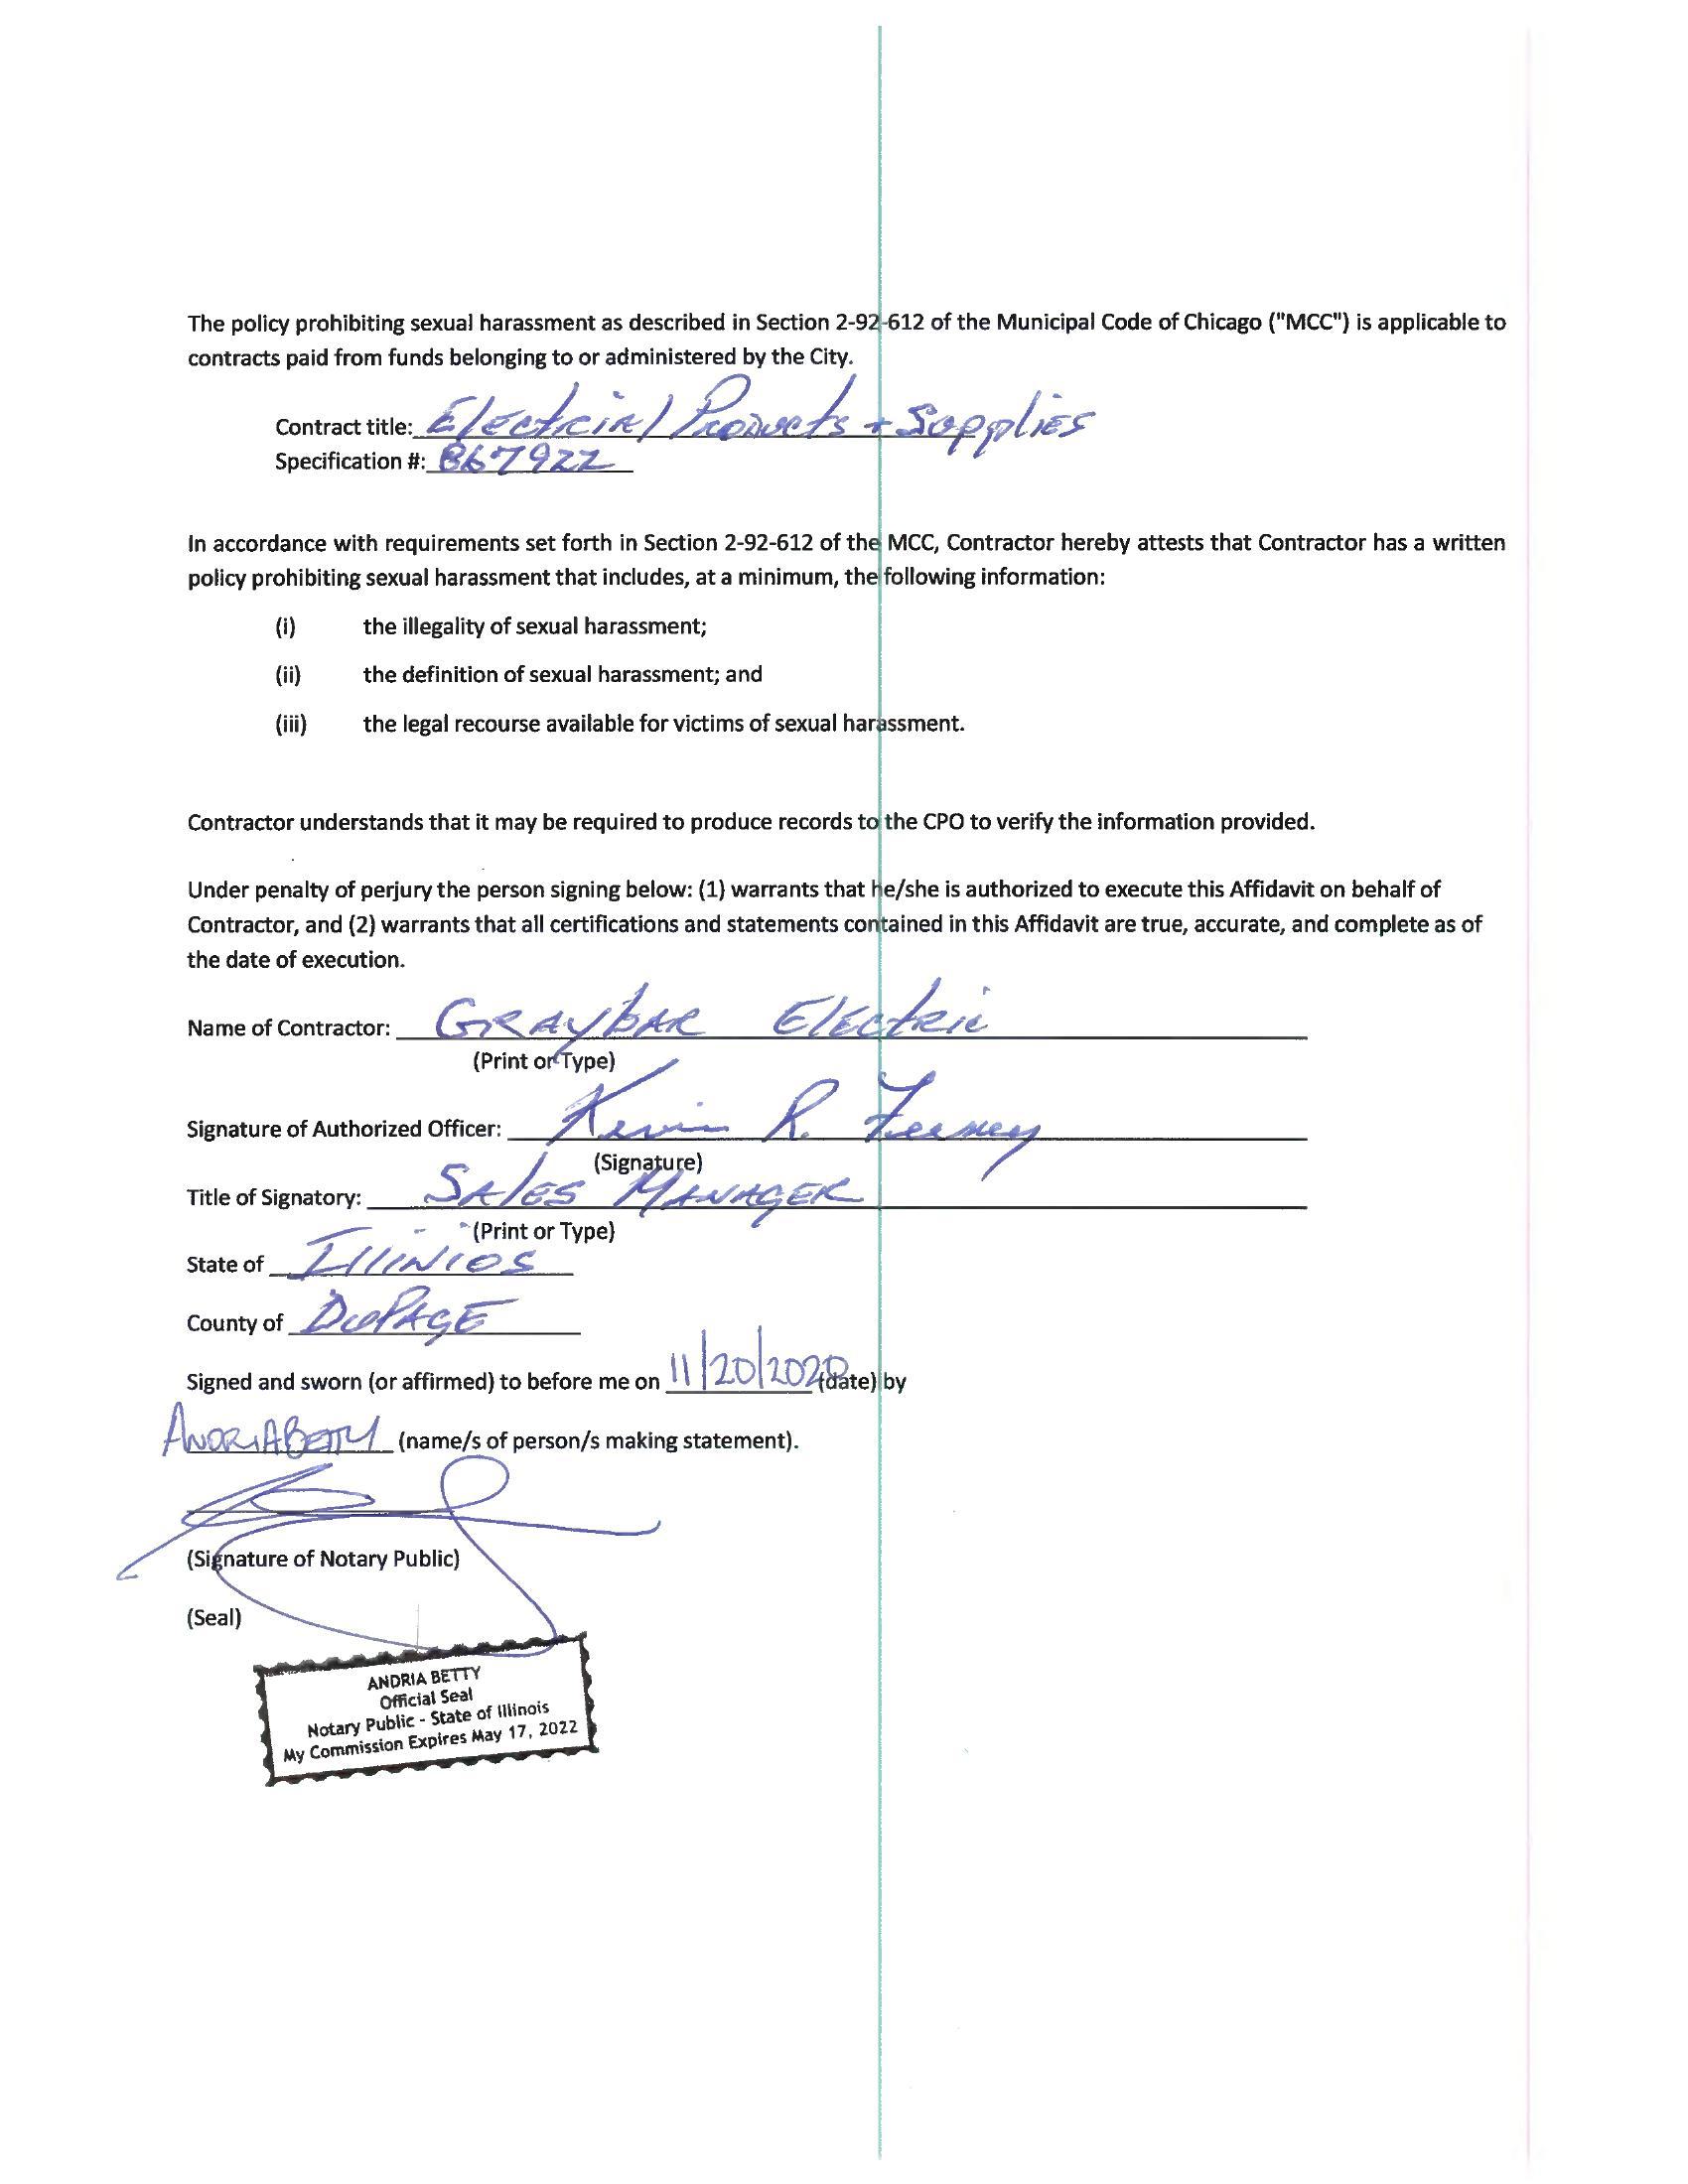 The policy prohibiting sexual harassment as described in Section 2-92-612 of the Municipal Code of Chicago ("MCC") is applicable to
contracts paid from funds belonging to or administered by the City.
Contract title: Electrical Products + Supplies
Specification #: 867922
In accordance with requirements set forth in Section 2-92-612 of the MCC, Contractor hereby attests that Contractor has a written
policy prohibiting sexual harassment that includes, at a minimum, the following information:
(i) the illegality of sexual harassment;
(ii) the definition of sexual harassment; and
(iii) the legal recourse available for victims of sexual harassment.
Contractor understands that it may be required to produce records to the CPO to verify the information provided.
Under penalty of perjury the person signing below: (1) warrants that he/she is authorized to execute this Affidavit on behalf of
Contractor, and (2) warrants that all certifications and statements contained in this Affidavit are true, accurate, and complete as of
the date of execution.
Name of Contractor: GRAYbAR Electric
(Print or Type)
Signature of Authorized Officer: Kevin R.
(Signature)
Title of Signatory: SAlES MANAGER
(Print or Type)
State of IllINIOS
County of DuPAGE
Signed and sworn (or affirmed) to before me on 11/20/2020 (date) by
ANDRIA BETTY (name/s of person/s making statement).
(Signature of Notary Public)
(Seal)
ANDRIA BETTY
Official Seal
Notary Public - State of Illinois
My Commission Expires May 17, 2022